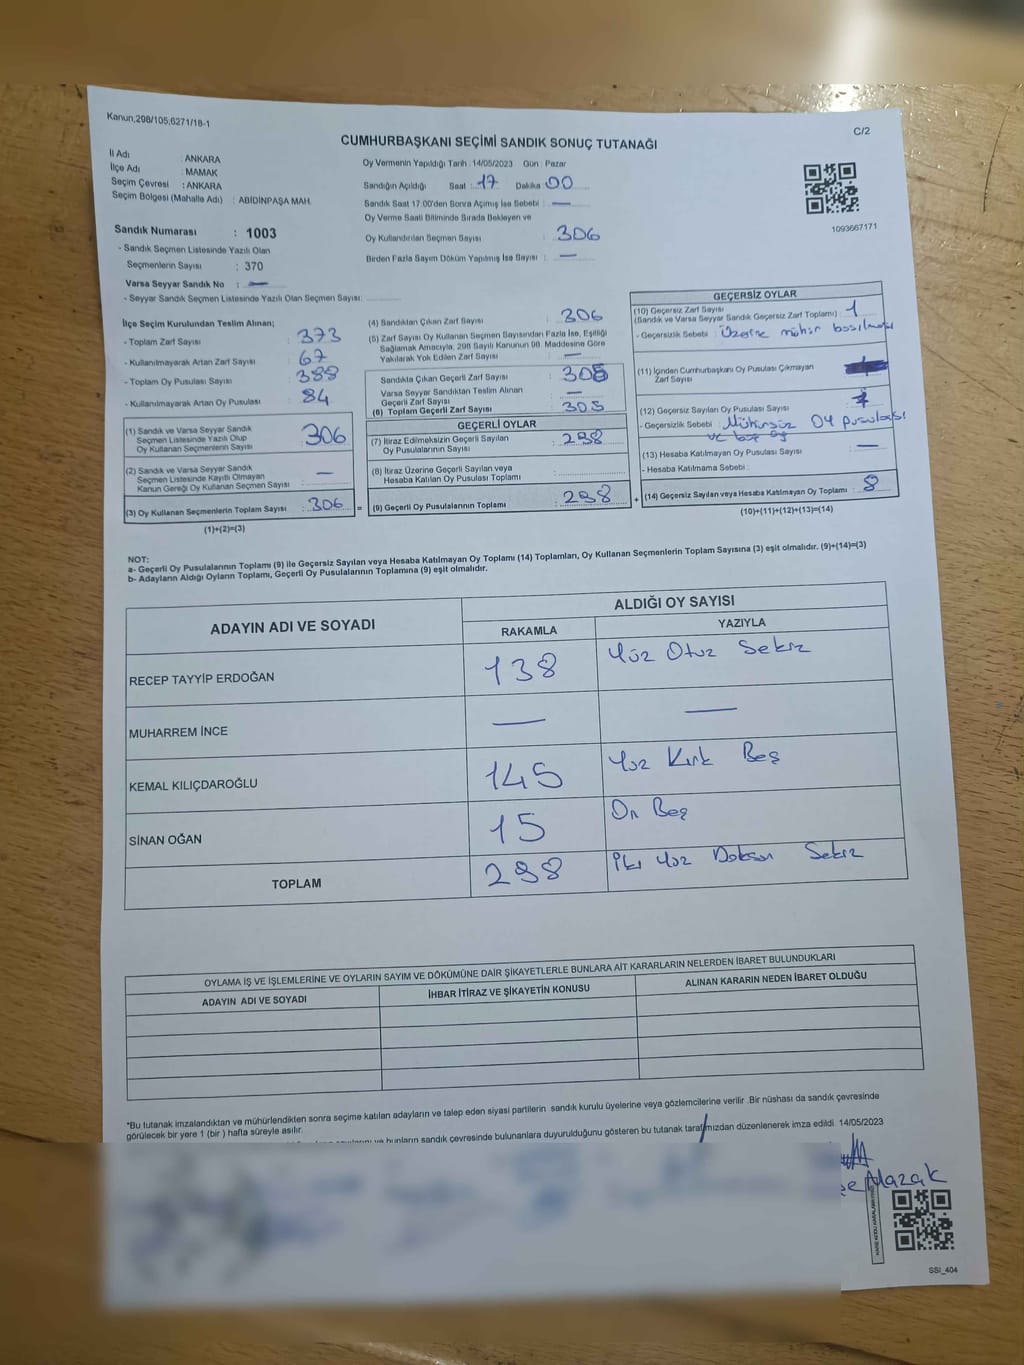 Kanun;298/105,6271/18-1
C/2
CUMHURBAŞKANI SEÇİMİ SANDIK SONUÇ TUTANAĞI
İl Adı : ANKARA
İlçe Adı : MAMAK
Seçim Çevresi : ANKARA
Seçim Bölgesi (Mahalle Adı) : ABİDİNPAŞA MAH.
Sandık Numarası : 1003
- Sandık Seçmen Listesinde Yazılı Olan
Seçmenlerin Sayısı : 370
Varsa Seyyar Sandık No : —
- Seyyar Sandık Seçmen Listesinde Yazılı Olan Seçmen Sayısı:
Oy Vermenin Yapıldığı Tarih : 14/05/2023 Gün : Pazar
Sandığın Açıldığı Saat : 17 Dakika : 00
Sandık Saat 17:00'den Sonra Açımış İse Sebebi : —
Oy Verme Saati Bitiminde Sırada Bekleyen ve
Oy Kullandırılan Seçmen Sayısı : 306
Birden Fazla Sayım Döküm Yapılmış İse Sayısı : —
1093667171
İlçe Seçim Kurulundan Teslim Alınan;
- Toplam Zarf Sayısı : 373
- Kullanılmayarak Artan Zarf Sayısı : 67
- Toplam Oy Pusulası Sayısı : 388
- Kullanılmayarak Artan Oy Pusulası : 84
(1) Sandık ve Varsa Seyyar Sandık
Seçmen Listesinde Yazılı Olup
Oy Kullanan Seçmenlerin Sayısı : 306
(2) Sandık ve Varsa Seyyar Sandık
Seçmen Listesinde Kayıtlı Olmayan
Kanun Gereği Oy Kullanan Seçmen Sayısı : —
(3) Oy Kullanan Seçmenlerin Toplam Sayısı : 306
(1)+(2)=(3)
(4) Sandıktan Çıkan Zarf Sayısı : 306
(5) Zarf Sayısı Oy Kullanan Seçmen Sayısından Fazla İse, Eşitliği
Sağlamak Amacıyla, 298 Sayılı Kanunun 98. Maddesine Göre
Yakılarak Yok Edilen Zarf Sayısı : —
Sandıkta Çıkan Geçerli Zarf Sayısı : 305
Varsa Seyyar Sandıktan Teslim Alınan
Geçerli Zarf Sayısı : —
(6) Toplam Geçerli Zarf Sayısı : 305
GEÇERLİ OYLAR
(7) İtiraz Edilmeksizin Geçerli Sayılan
Oy Pusulalarının Sayısı : 298
(8) İtiraz Üzerine Geçerli Sayılan veya
Hesaba Katılan Oy Pusulası Toplamı :
(9) Geçerli Oy Pusulalarının Toplamı : 298
GEÇERSİZ OYLAR
(10) Geçersiz Zarf Sayısı
(Sandık ve Varsa Seyyar Sandık Geçersiz Zarf Toplamı) : 1
- Geçersizlik Sebebi : Üzerine mühür basılması
(11) İçinden Cumhurbaşkanı Oy Pusulası Çıkmayan
Zarf Sayısı
(12) Geçersiz Sayılan Oy Pusulası Sayısı : 7
- Geçersizlik Sebebi : Mühürsüz Oy pusulası
ve boş oy
(13) Hesaba Katılmayan Oy Pusulası Sayısı : —
- Hesaba Katılmama Sebebi :
(14) Geçersiz Sayılan veya Hesaba Katılmayan Oy Toplamı : 8
(10)+(11)+(12)+(13)=(14)
NOT:
a- Geçerli Oy Pusulalarının Toplamı (9) ile Geçersiz Sayılan veya Hesaba Katılmayan Oy Toplamı (14) Toplamları, Oy Kullanan Seçmenlerin Toplam Sayısına (3) eşit olmalıdır. (9)+(14)=(3)
b- Adayların Aldığı Oyların Toplamı, Geçerli Oy Pusulalarının Toplamına (9) eşit olmalıdır.
ADAYIN ADI VE SOYADI
ALDIĞI OY SAYISI
RAKAMLA YAZIYLA
RECEP TAYYİP ERDOĞAN 138 Yüz Otuz Sekiz
MUHARREM İNCE — —
KEMAL KILIÇDAROĞLU 145 Yüz Kırk Beş
SİNAN OĞAN 15 On Beş
TOPLAM 298 İki Yüz Doksan Sekiz
OYLAMA İŞ VE İŞLEMLERİNE VE OYLARIN SAYIM VE DÖKÜMÜNE DAİR ŞİKAYETLERLE BUNLARA AİT KARARLARIN NELERDEN İBARET BULUNDUKLARI
ADAYIN ADI VE SOYADI İHBAR İTİRAZ VE ŞİKAYETİN KONUSU ALINAN KARARIN NEDEN İBARET OLDUĞU
*Bu tutanak imzalandıktan ve mühürlendikten sonra seçime katılan adayların ve talep eden siyasi partilerin sandık kurulu üyelerine veya gözlemcilerine verilir .Bir nüshası da sandık çevresinde
görülecek bir yere 1 (bir ) hafta süreyle asılır.
ve bunların sandık çevresinde bulunanlara duyurulduğunu gösteren bu tutanak tarafımızdan düzenlenerek imza edildi. 14/05/2023
SSI_404